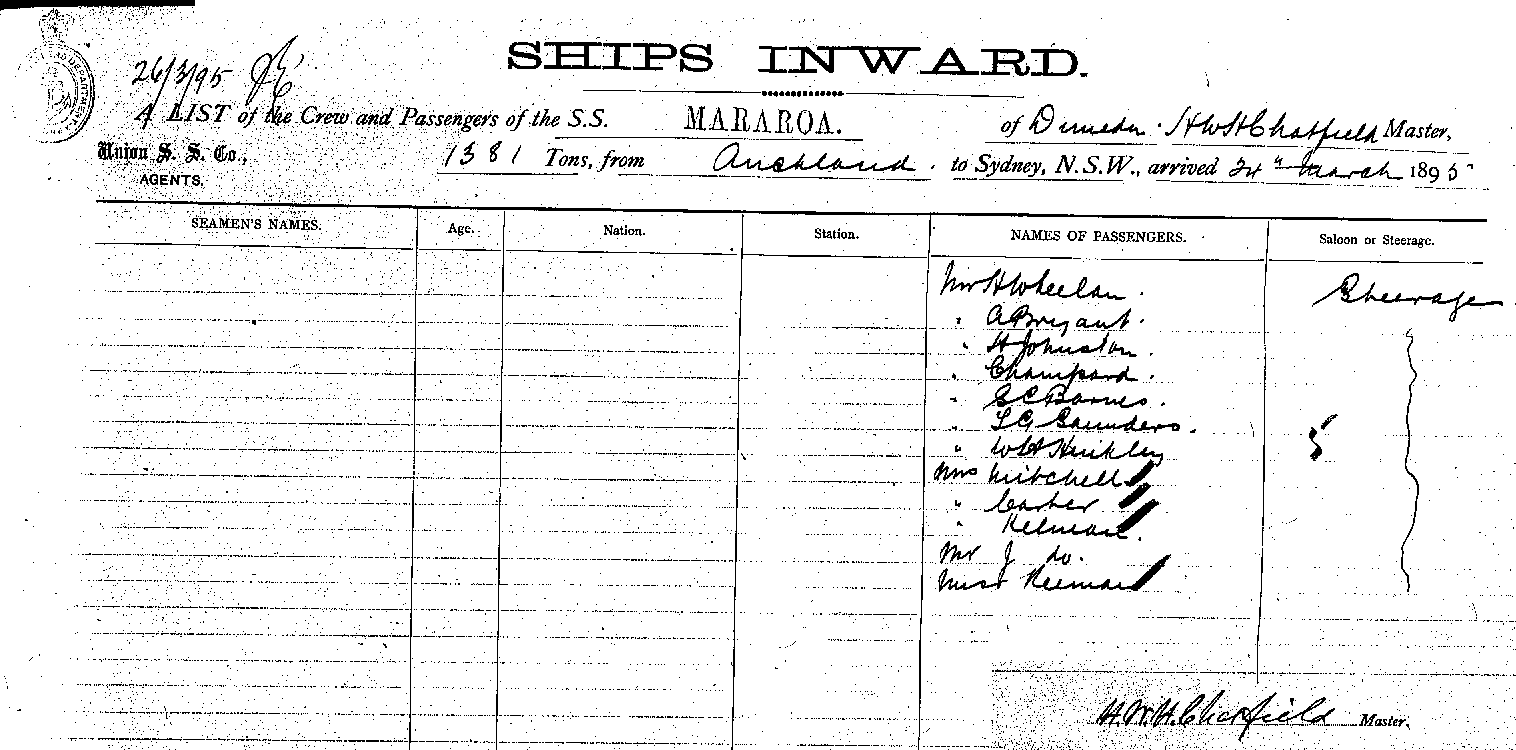 SHIPS INWARD.
26/3/95
A LIST of the Crew and Passengers of the S.S. MARAROA. of Dunedin. H W H Chatfield Master,
Union S. S. Co., AGENTS. 1381 Tons, from Auckland. to Sydney, N.S.W., arrived 24" March 1895
SEAMEN'S NAMES. Age. Nation. Station. NAMES OF PASSENGERS. Saloon or Steerage.
Mr H Wheelan. Steerage
" A Bryant.
" H Johnston.
" Champard.
" S C Barnes.
" L G Saunders.
" W H Hinkley 5
Mrs Mitchell
" Carter
" Kelman.
Mr J do.
Miss
H.W.H. Chatfield Master.